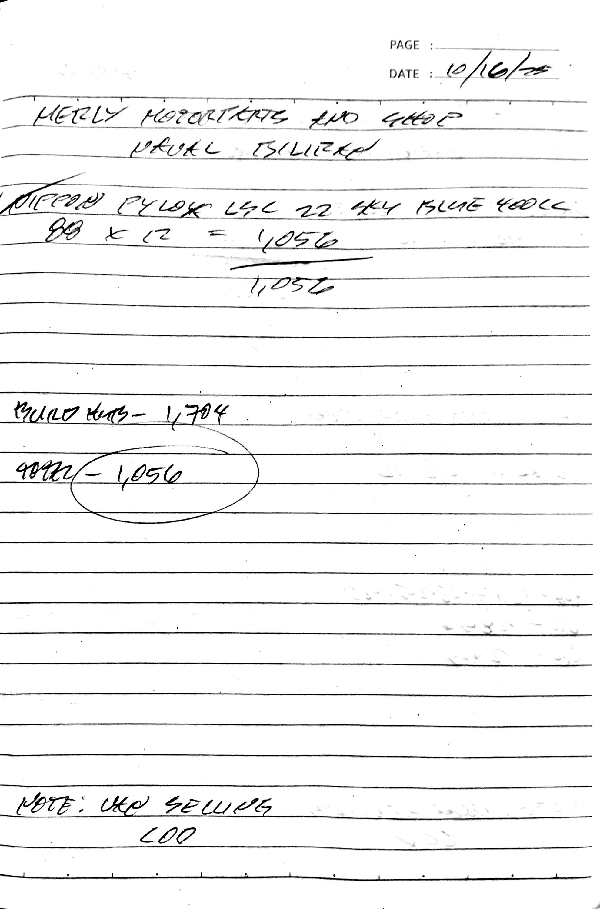 PAGE :
DATE : 10/16/25
MERLY MOTORPARTS AND SHOP
NAVAL BILIRAN
NIPPON PYLOX LSC 22 SKY BLUE 400CC
88 x 12 = 1,056
1,056
- 1,704
- 1,056
NOTE: VAN SELLING
COD